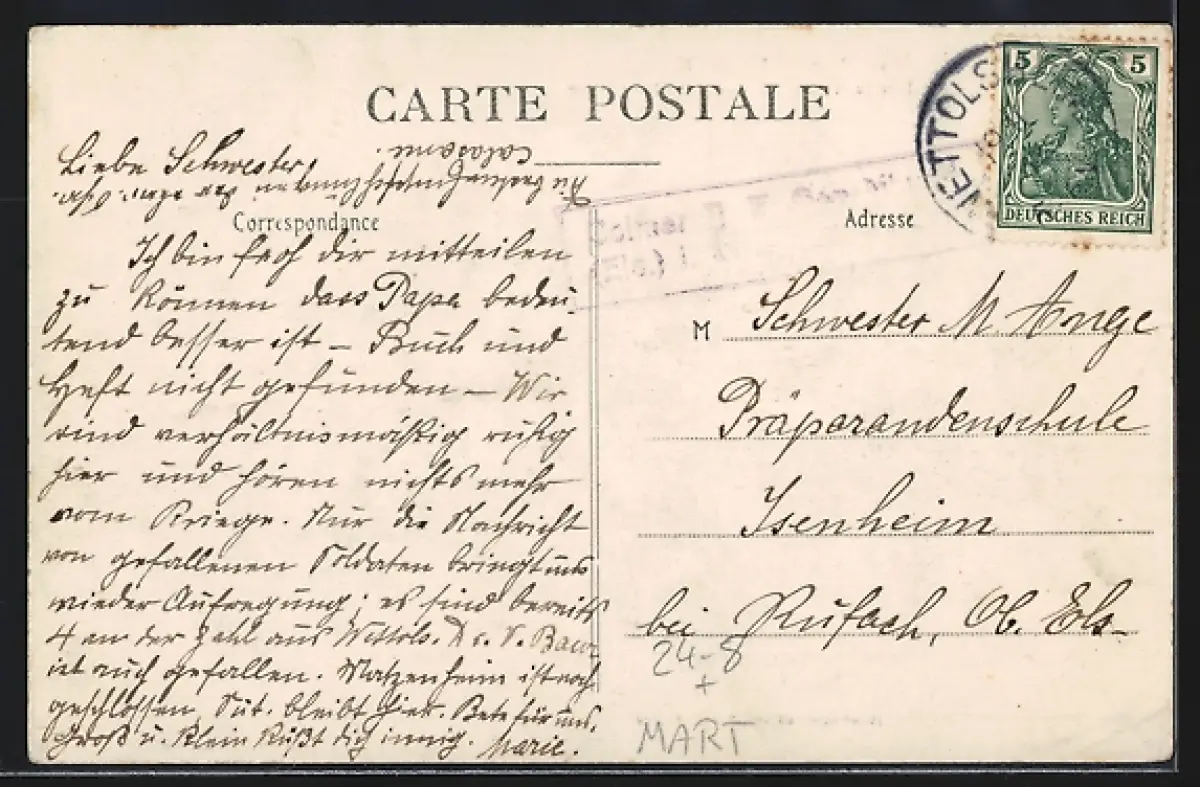 CARTE POSTALE
Liebe Schwester,
Correspondance
Ich bin froh dir mitteilen
zu können dass Papa bedeu-
tend besser ist – Buch und
Heft nicht gefunden – Wir
sind verhältnismäßig ruhig
hier und hören nichts mehr
vom Kriege. Nur die Nachricht
von gefallenen Soldaten bringt uns
wieder Aufregung; es sind bereits
4 an der Zahl aus Wettols.
ist auch gefallen. Matzenheim ist noch
geschlossen, bleibt hier. Bete für uns.
Groß u. Klein küßt dich innig. Marie.
Adresse
M Schwester M. Ange
Präparandenschule
Isenheim
bei Rufach, Ob. Els-
24-8
+
MART
WETTOLS
5 5
DEUTSCHES REICH